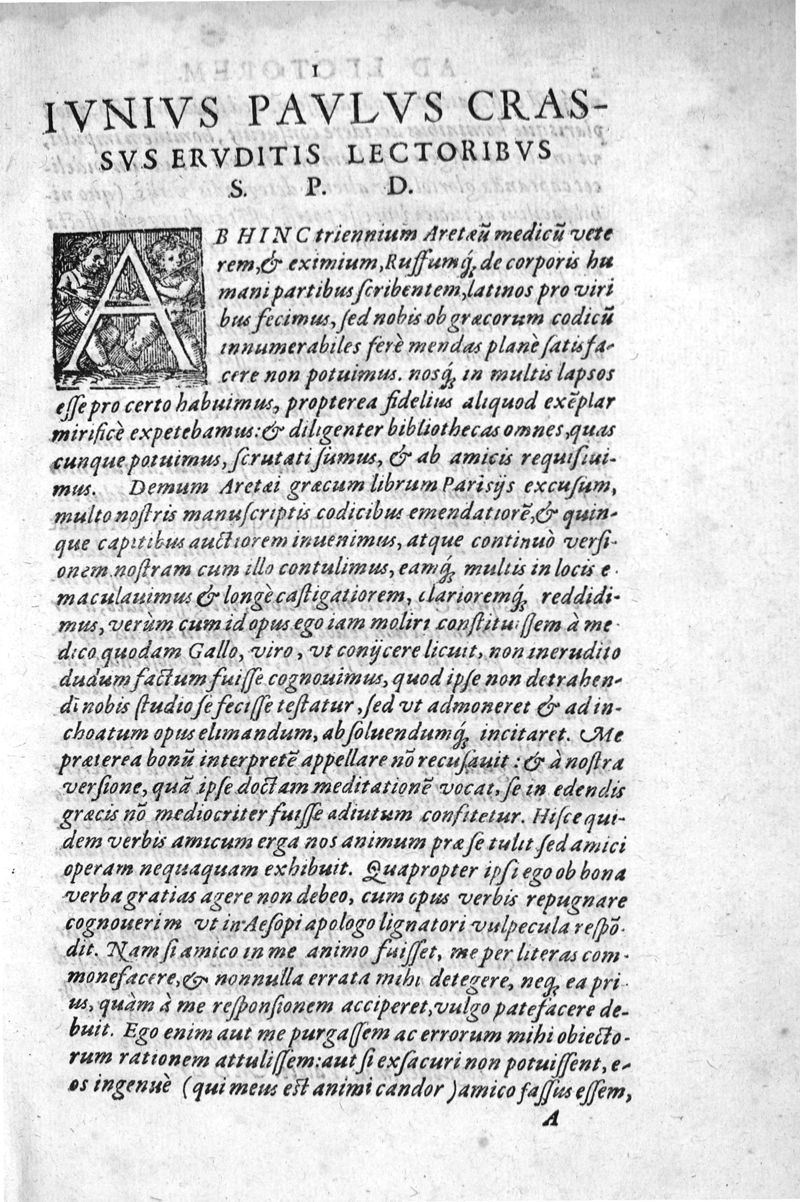 I
IVNIVS PAVLVS CRAS-
SVS ERVDITIS LECTORIBVS
S. P. D.
AB HINC triennium Aretæũ medicũ vete
rem, & eximium, Ruffumq́; de corporis hu
mani partibus scribentem, latinos pro viri
bus fecimus, sed nobis ob græcorum codicũ
innumerabiles ferè mendas planè satisfa-
cere non potuimus. nosq́; in multis lapsos
esse pro certo habuimus, propterea fidelius aliquod exẽplar
mirificè expetebamus: & diligenter bibliothecas omnes, quas
cunque potuimus, scrutati sumus, & ab amicis requisiui-
mus. Demum Aretæi græcum librum Parisijs excusum,
multo nostris manuscriptis codicibus emendatiorẽ, & quin-
que capitibus auctiorem inuenimus, atque continuò versi-
onem nostram cum illo contulimus, eamq́; multis in locis e-
maculauimus & longè castigatiorem, clarioremq́; reddidi-
mus, verùm cum id opus ego iam moliri constituissem à me-
dico quodam Gallo, viro, vt conijcere licuit, non inerudito
dudum factum fuisse cognouimus, quod ipse non detrahen-
di nobis studio se fecisse testatur, sed vt admoneret & ad in-
choatum opus elimandum, absoluendumq́; incitaret. Me
præterea bonũ interpretẽ appellare nõ recusauit: & à nostra
versione, quã ipse doctam meditationẽ vocat, se in edendis
græcis nõ mediocriter fuisse adiutum confitetur. Hisce qui-
dem verbis amicum erga nos animum præ se tulit sed amici
operam nequaquam exhibuit. Quapropter ipsi ego ob bona
verba gratias agere non debeo, cum opus verbis repugnare
cognouerim vt in Aesopi apologo lignatori vulpecula respõ-
dit. Nam si amico in me animo fuisset, me per literas com-
monefacere, & nonnulla errata mihi detegere, neq; ea pri-
us, quàm à me responsionem acciperet, vulgo patefacere de-
buit. Ego enim aut me purgassem ac errorum mihi obiecto-
rum rationem attulissem: aut si exsacuri non potuissent, e-
os ingenuè (qui meus est animi candor) amico fassus essem,
A